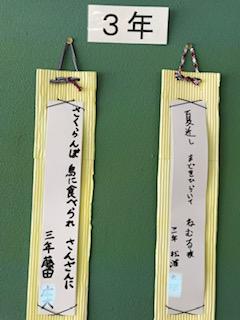 ３年
夏近し まどをひらいて ねむる夜
三年 松浦
さくらんぼ 鳥に食べられ さんざんに
三年 藤田